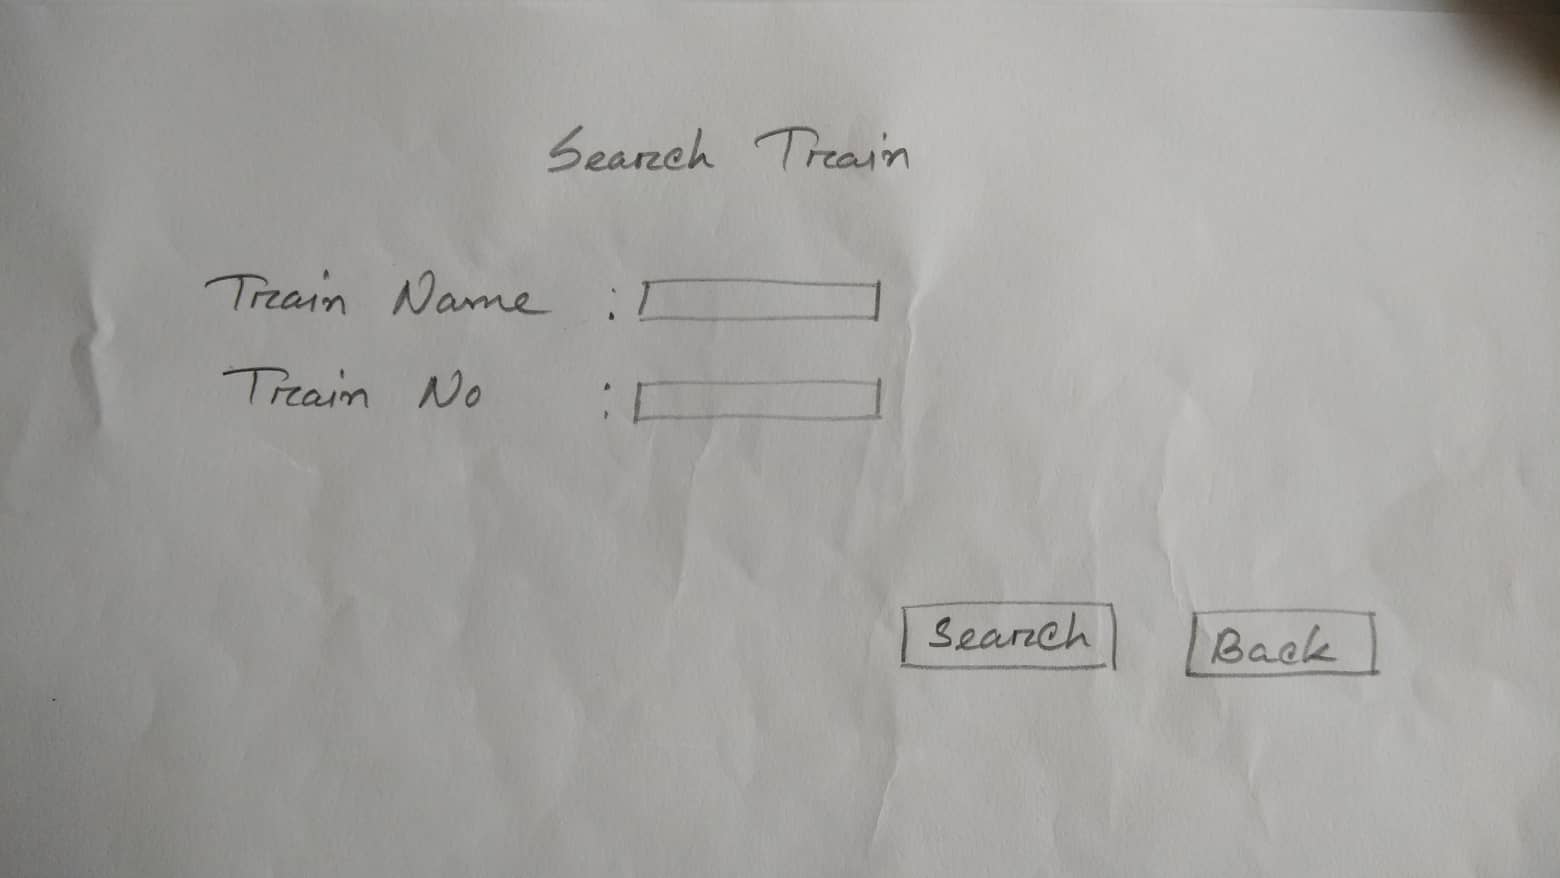 Search Train
Train Name :
Train No :
Search Back